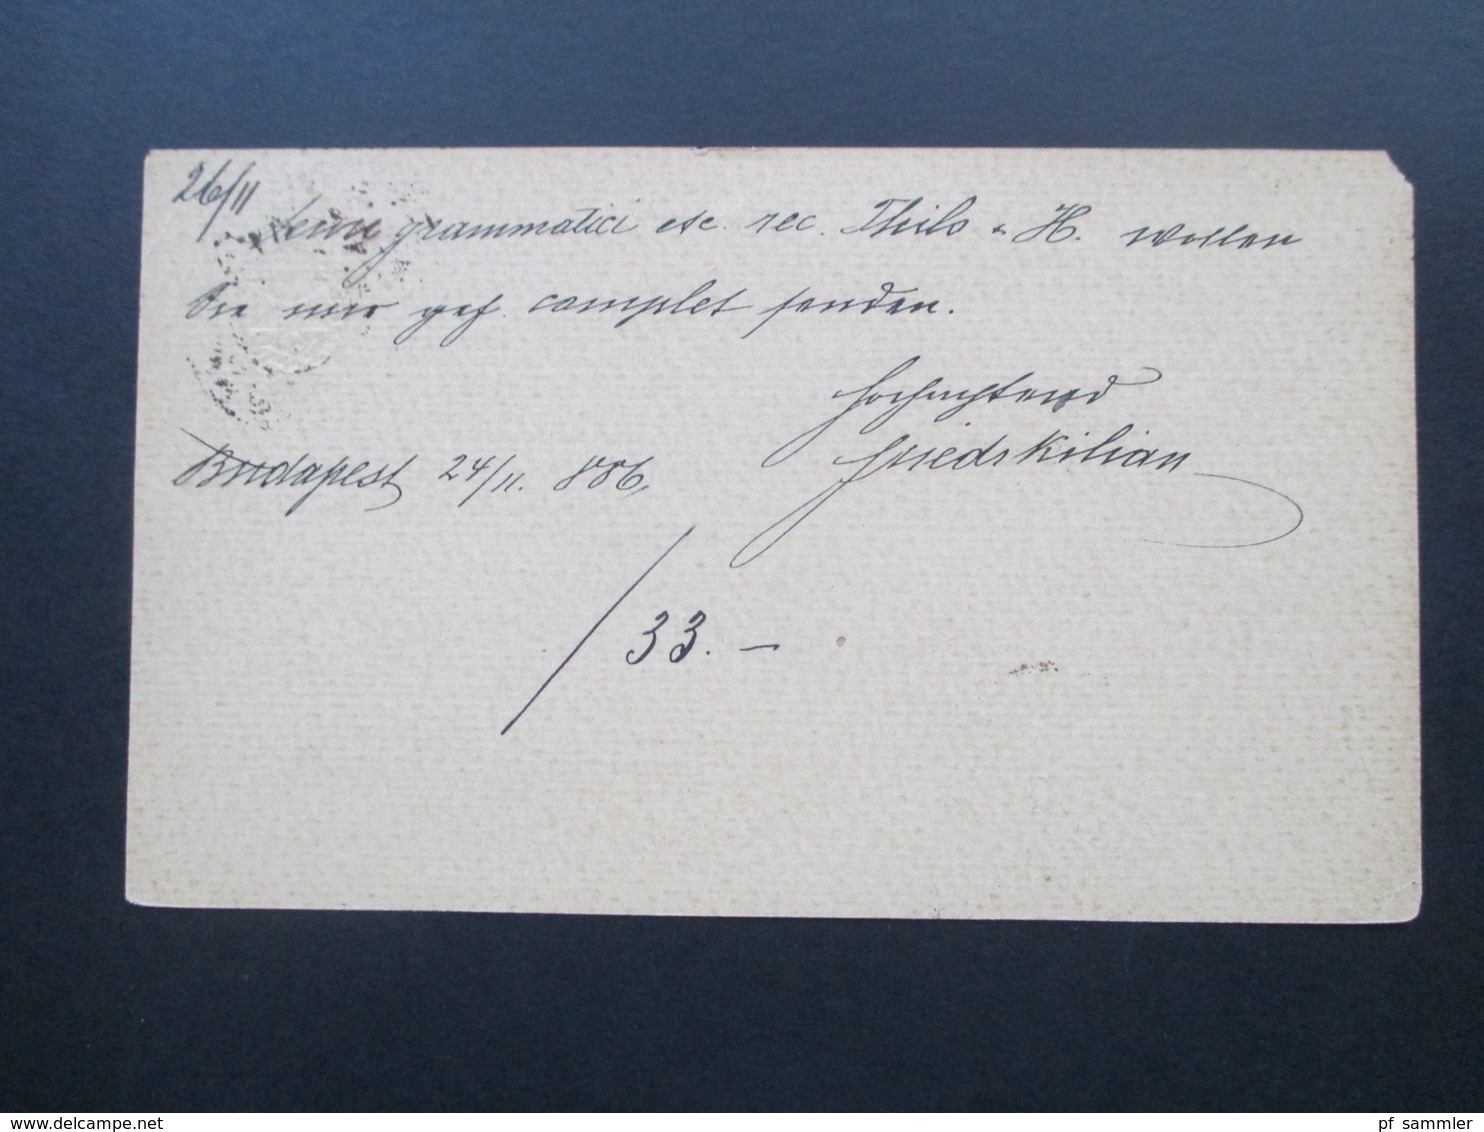 26/11
Servii grammatici etc. rec. Thilo & H. wollen
Sie mir gef. complet senden.
Hochachtend
Friedr Kilian
Budapest 24/11. 886.
/ 33. –
pf_sammler